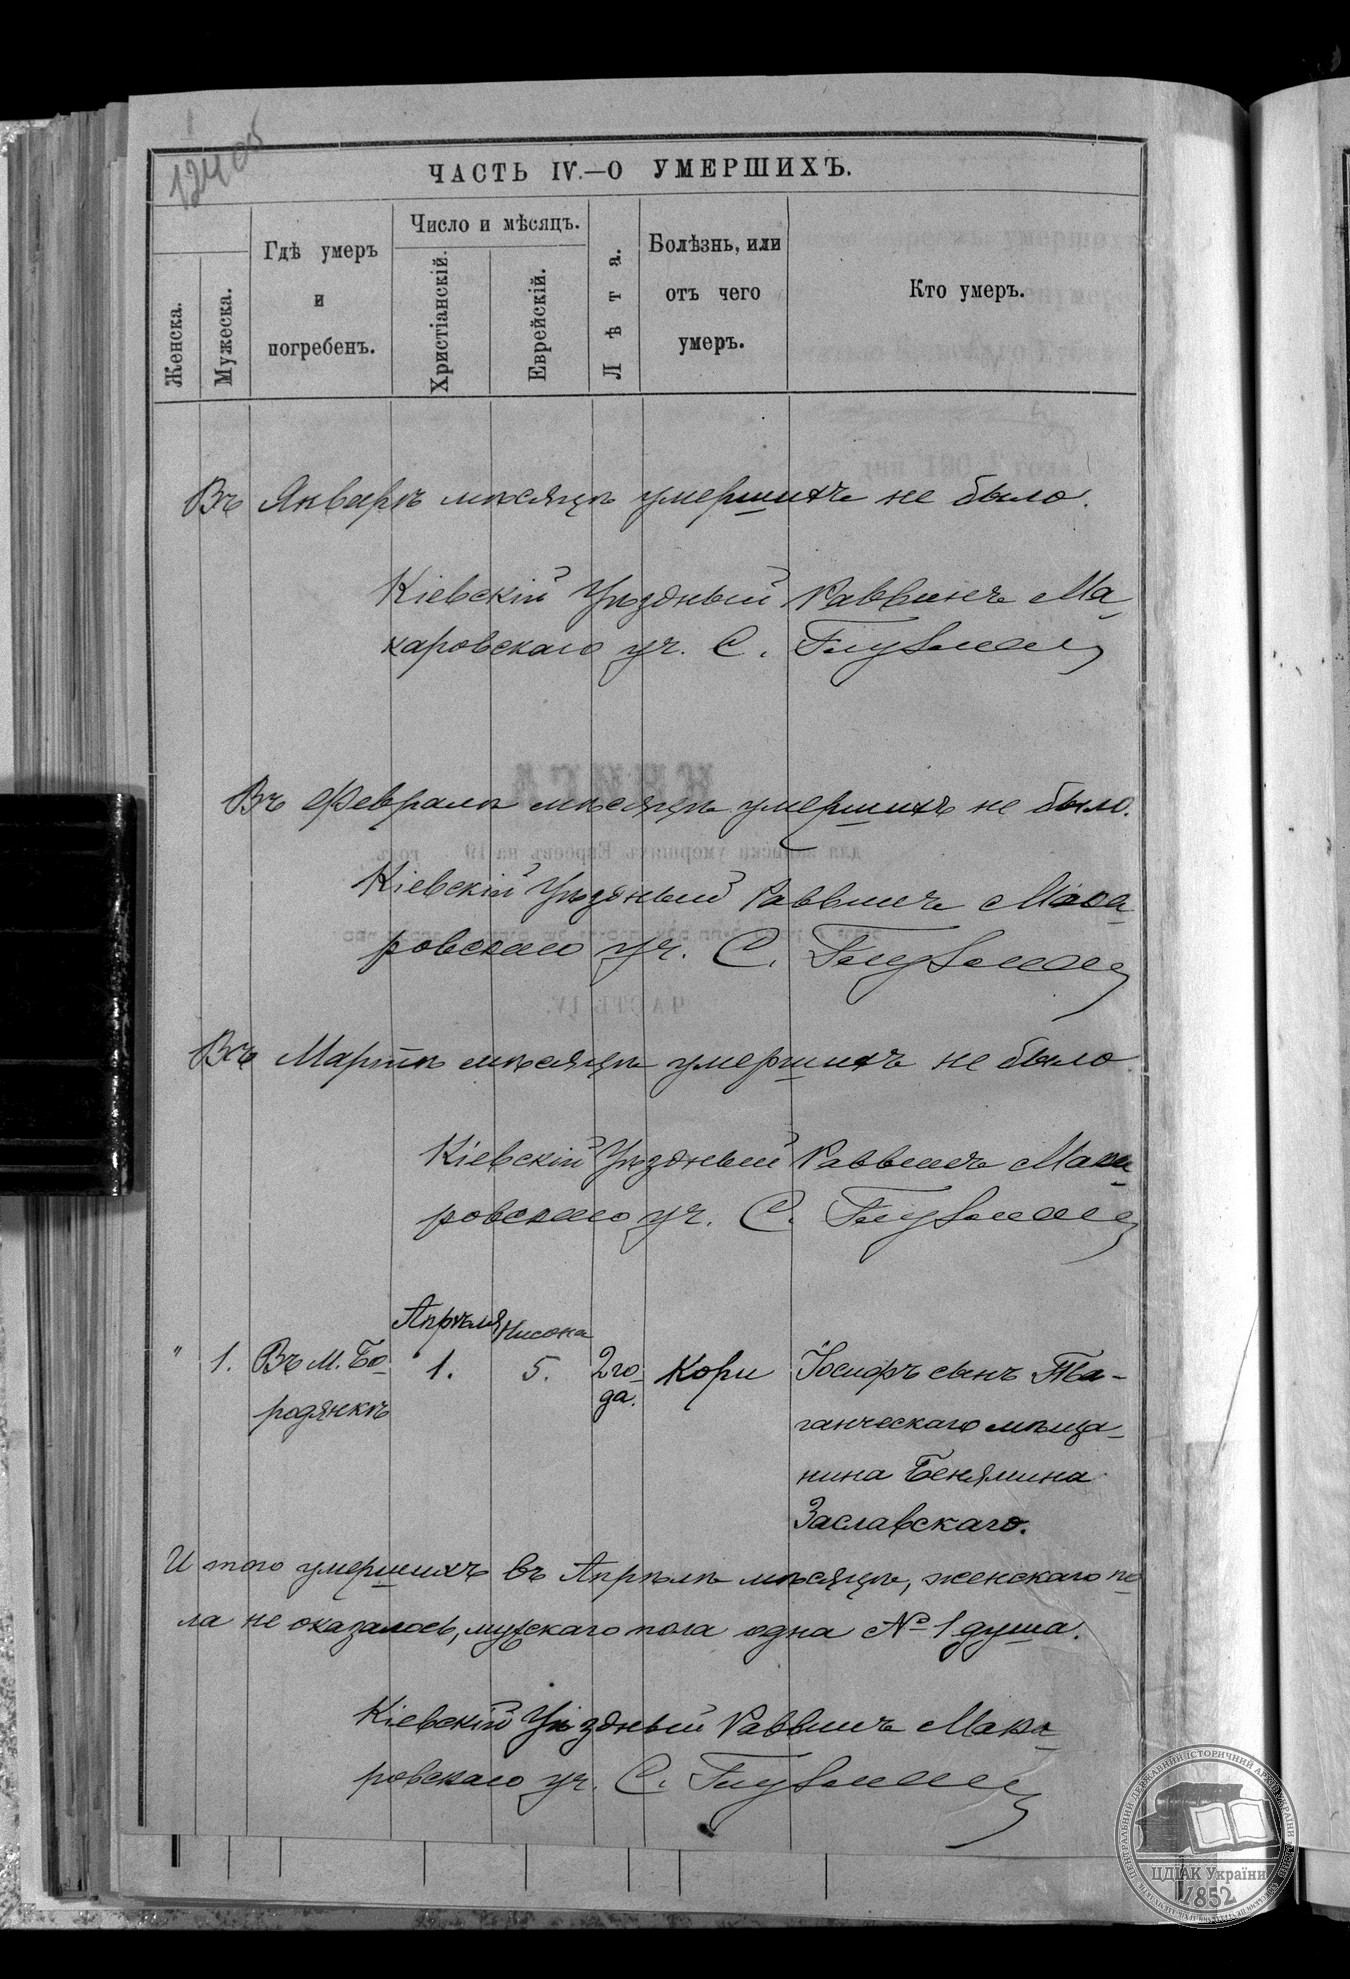 124 об
ЧАСТЬ IV.—О УМЕРШИХЪ.
Женска.
Мужеска.
Гдѣ умеръ
и
погребенъ.
Число и мѣсяцъ.
Христіанскій.
Еврейскій.
Лѣта.
Болѣзнь, или
отъ чего
умеръ.
Кто умеръ.
Въ Январѣ мѣсяцѣ умершихъ не было.
Кіевскій Уѣздный Раввинъ Ма-
каровскаго уч. С. Глузман
Въ Февралѣ мѣсяцѣ умершихъ не было.
Кіевскій Уѣздный Раввинъ Мака-
ровскаго уч. С. Глузман
Въ Мартѣ мѣсяцѣ умершихъ не было
Кіевскій Уѣздный Раввинъ Мака-
ровскаго уч. С. Глузман
Апрѣля Нисона
" 1. Въ М. Бо- 1. 5. 2 го- Кори Іосифъ сынъ Та-
родянкѣ да. ганческаго мѣща-
нина Бенямина
Заславскаго.
Итого умершихъ въ Апрѣлѣ мѣсяцѣ, женскаго по-
ла не оказалось, мужскаго пола одна № 1 душа.
Кіевскій Уѣздный Раввинъ Мака-
ровскаго уч. С. Глузман
ЦЕНТРАЛЬНИЙ ДЕРЖАВНИЙ ІСТОРИЧНИЙ АРХІВ УКРАЇНИ
ЦДІАК України
1852